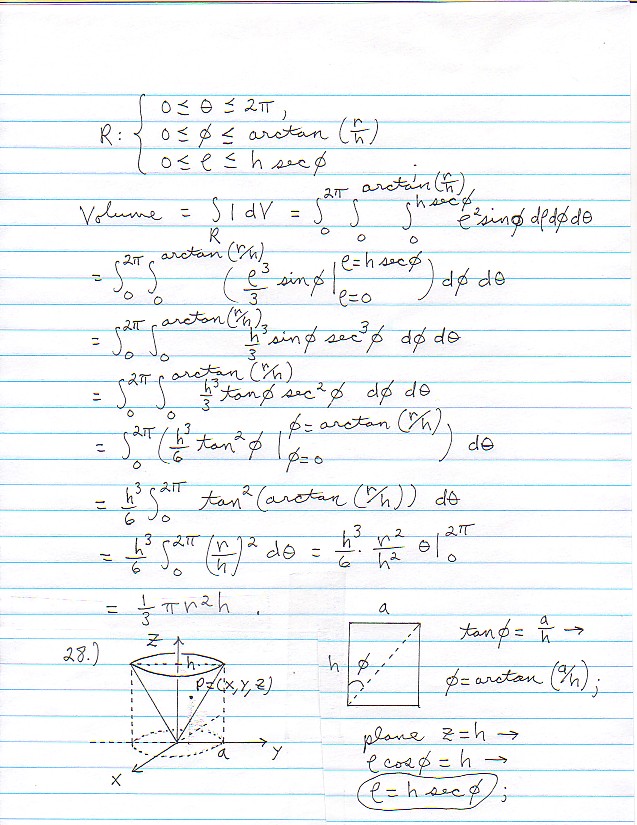 R: { 0 ≤ θ ≤ 2π,
0 ≤ φ ≤ arctan (r/h)
0 ≤ ρ ≤ h sec φ
Volume = ∫_R 1 dV = ∫_0^2π ∫_0^arctan(r/h) ∫_0^h sec φ ρ² sin φ dρ dφ dθ
= ∫_0^2π ∫_0^arctan(r/h) (ρ³/3 sin φ |_ρ=0^ρ=h sec φ) dφ dθ
= ∫_0^2π ∫_0^arctan(r/h) h³/3 sin φ sec³ φ dφ dθ
= ∫_0^2π ∫_0^arctan(r/h) h³/3 tan φ sec² φ dφ dθ
= ∫_0^2π (h³/6 tan² φ |_φ=0^φ=arctan(r/h)) dθ
= h³/6 ∫_0^2π tan² (arctan (r/h)) dθ
= h³/6 ∫_0^2π (r/h)² dθ = h³/6 · r²/h² θ|_0^2π
= 1/3 π r² h .
28.)
z
h
P=(x,y,z)
a
y
x
a
h
φ
tan φ = a/h →
φ = arctan (a/h);
plane z=h →
ρ cos φ = h →
ρ = h sec φ ;